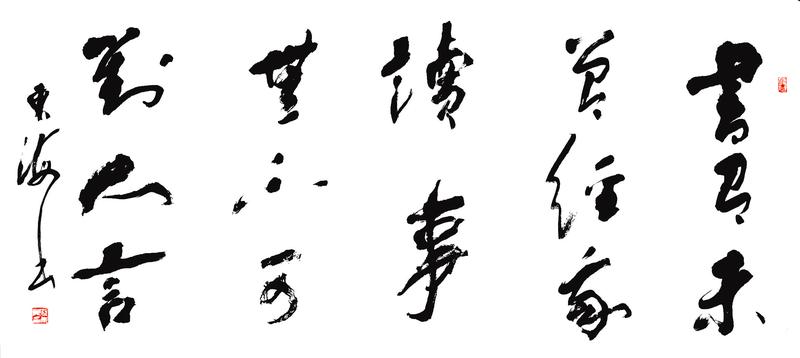 書有未
曾經我
讀事
無不可
對人言
東海